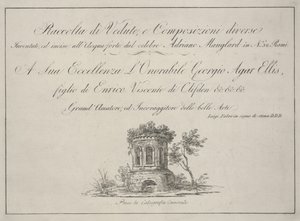 Raccolta di Vedute, e Composizioni diverse
Inventate, ed incise all'Acqua forte dal celebre Adriano Manglard in N.º Rami
A Sua Eccellenza L'Onorabile Georgio Agar Ellis,
figlio di Enrico Visconte di Clifden &c. &c. &c.
Grand'Amatore, ed Incoraggitore delle belle Arti
Luigi Fabri in segno di stima D.D.D.